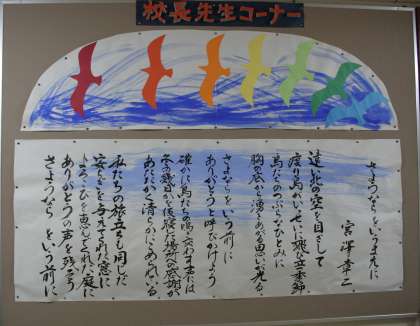 校長先生コーナー
さようならをいう前に
宮澤章二
遠い北の空を目ざして
渡り鳥がいっせいに飛び立つ季節
鳥たちのつぶらなひとみに
胸の奥から湧きあがる思いが光る
さよならをいう前に
ありがとうと呼びかけよう
確かに鳥たちの鳴き交わす声には
冬の幾日かを後援した場所への感謝が
あたたかく清らかにこめられている
私たちの旅立ちも同じだ
安らぎを与えてくれた窓に
よろこびを恵んでくれた庭に
ありがとうの声を残そう
さようならをいう前に